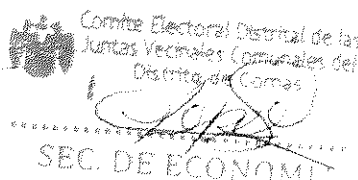 Comité Electoral Distrital de las
Juntas Vecinales Comunales del
Distrito de Comas
SEC. DE ECONOMI